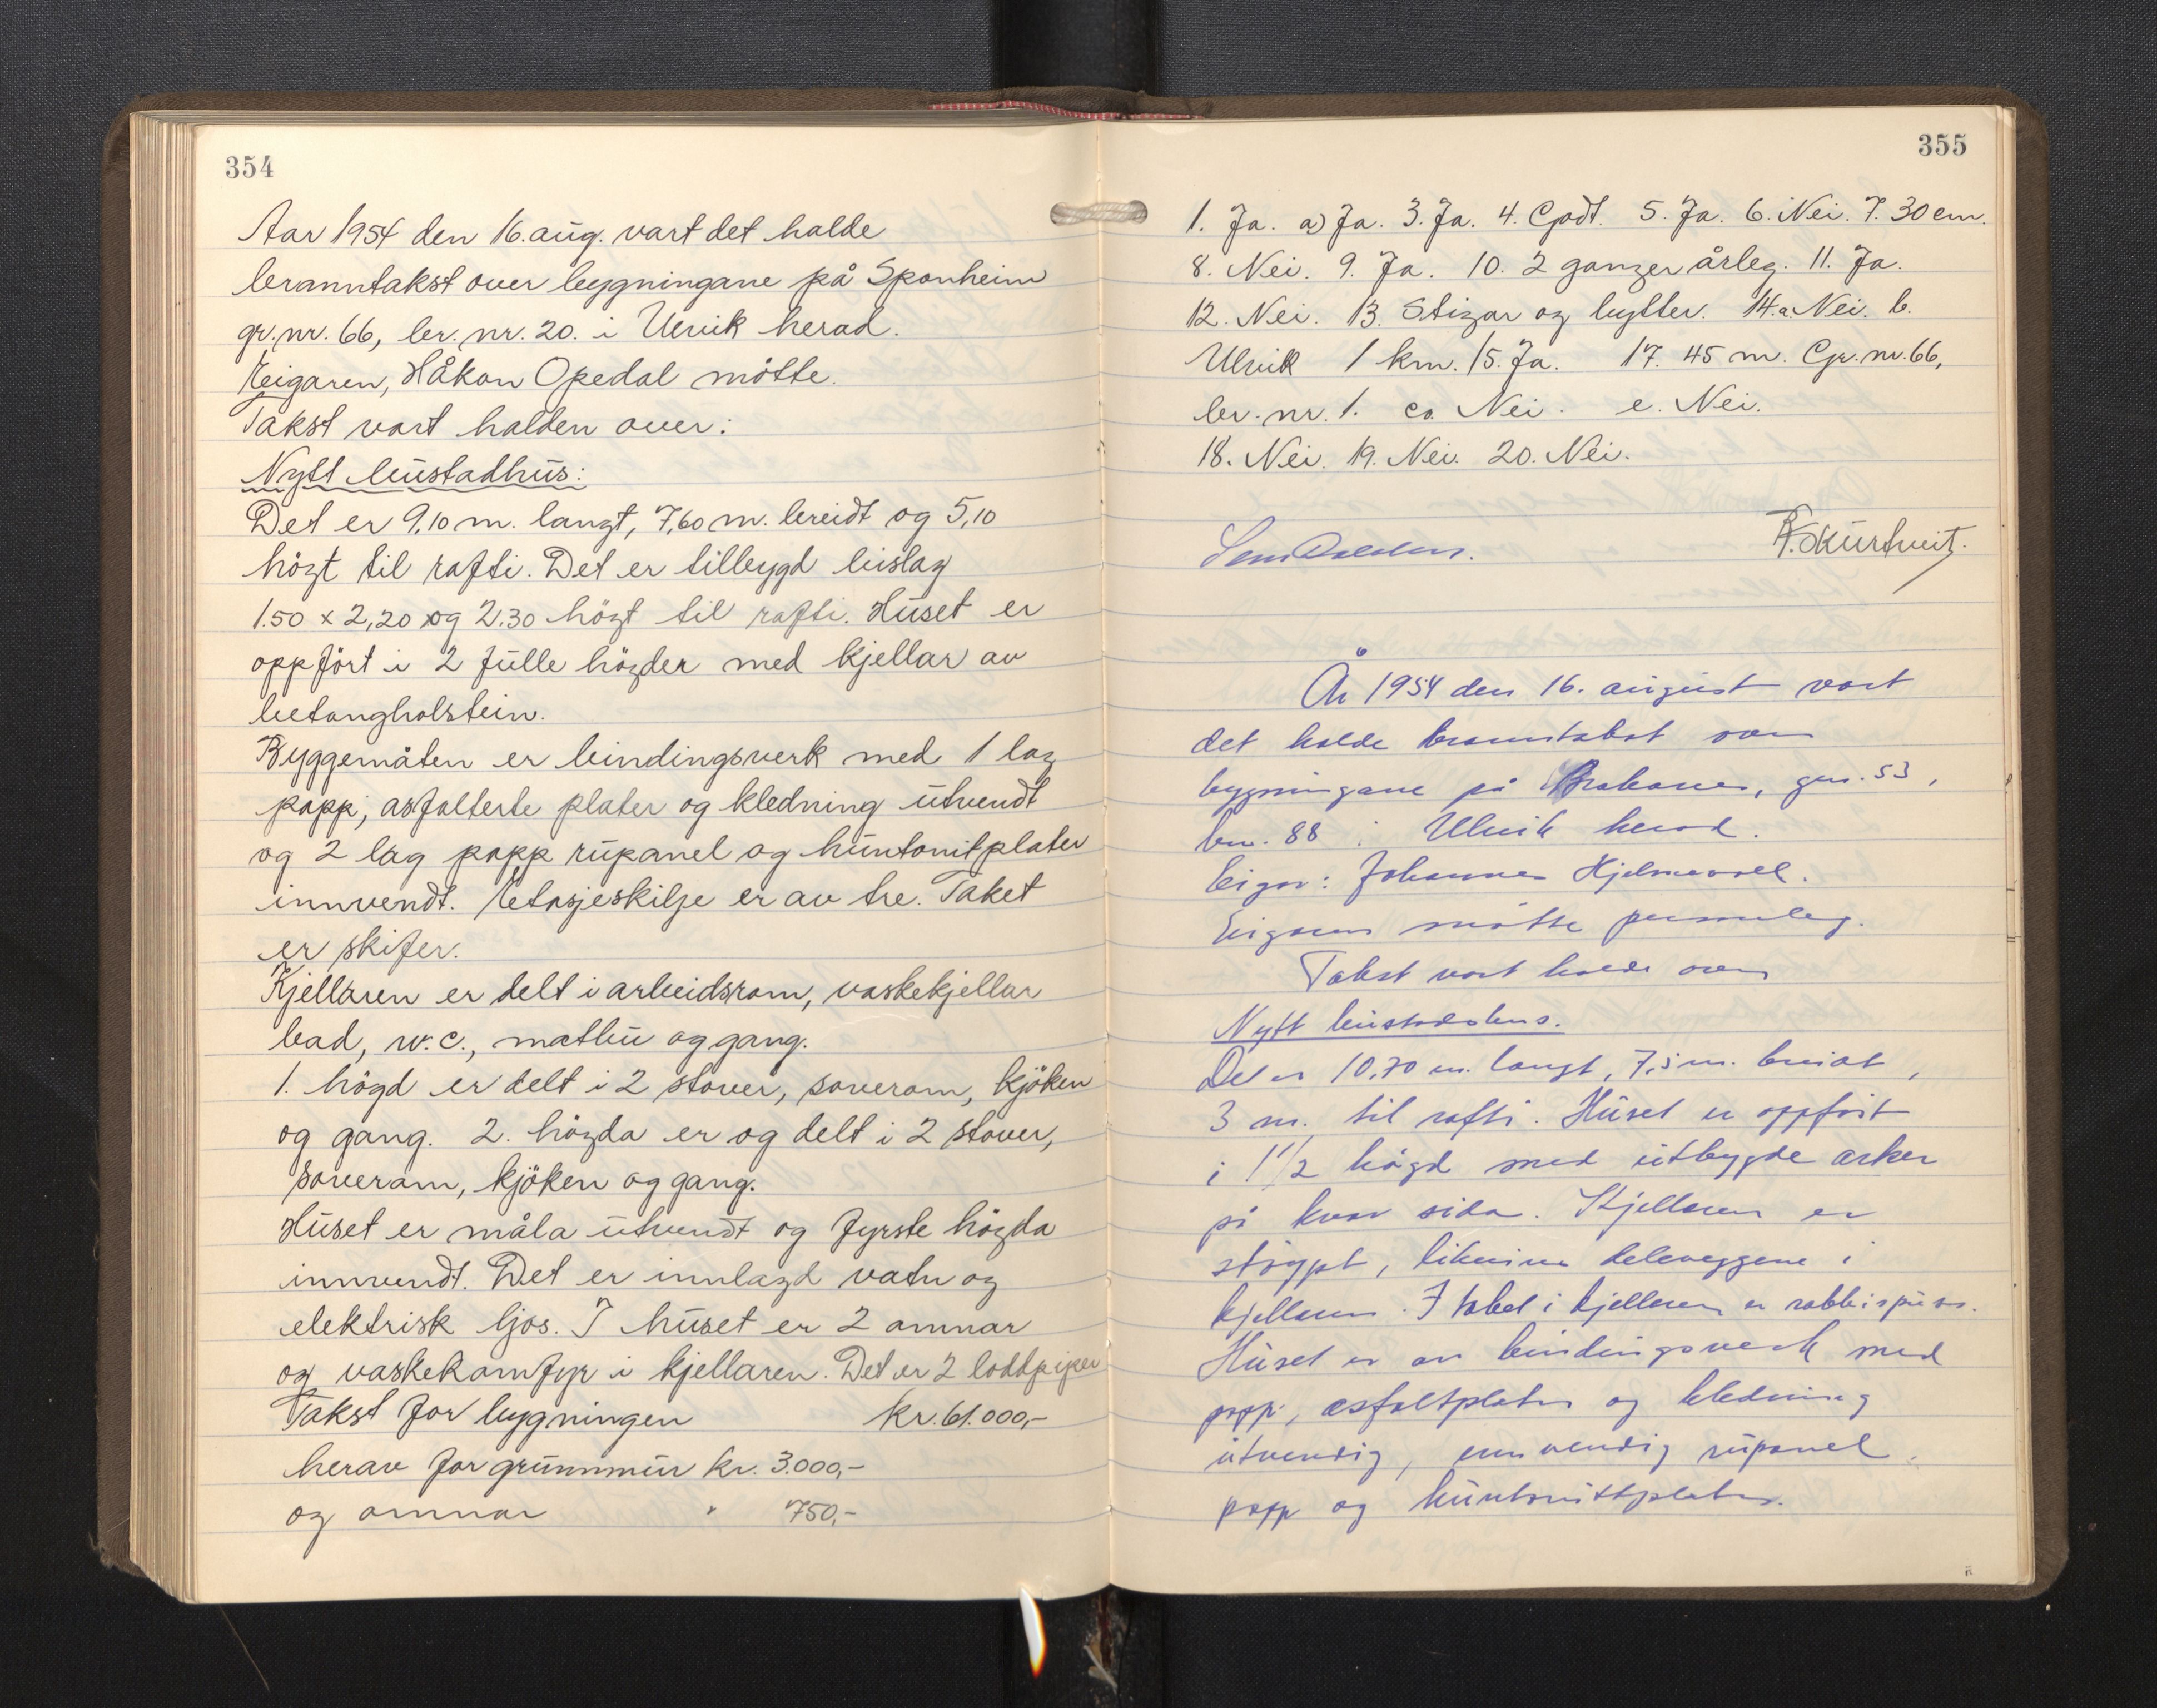 354
Aar 1954 den 16. aug. vart det halde
branntakst over bygningane på Sponheim
gr. nr. 66, br. nr. 20. i Ulvik herad.
Eigaren, Håkon Opedal mötte.
Takst vart halden over:
Nytt bustadhus:
Det er 9,10 m. langt, 7,60 m. breidt og 5,10
högt til rafti. Det er tilbygd bislag
1.50 x 2,20 og 2.30 högt til rafti. Huset er
oppfört i 2 fulle högder med kjellar av
betongholstein.
Byggemåten er bindingsverk med 1 lag
papp, asfalterte plater og kledning utvendt
og 2 lag papp rupanel og huntonitplater
innvendt. Etasjeskilje er av tre. Taket
er skifer.
Kjellaren er delt i arbeidsrom, vaskekjellar
bad, w.c., matbu og gang.
1. högd er delt i 2 stover, soverom, kjöken
og gang. 2. högda er og delt i 2 stover,
soverom, kjöken og gang.
Huset er måla utvendt og fyrste högda
innvendt. Det er innlagd vatn og
elektrisk ljos. I huset er 2 omnar
og vaskekomfyr i kjellaren. Det er 2 loddpiper
Takst for bygningen kr. 61.000,-
herav for grunnmur kr. 3.000,-
og omnar " 750,-
355
1. Ja. a) Ja. 3. Ja. 4. Godt. 5. Ja. 6. Nei. 7. 30 cm.
8. Nei. 9. Ja. 10. 2 ganger årleg. 11. Ja.
12. Nei. 13. Stigar og bytter. 14. a. Nei. b.
Ulvik 1 km. 15. Ja. 17. 45 m. Gr. nr. 66,
br. nr. 1. co. Nei. e. Nei.
18. Nei. 19. Nei. 20. Nei.
Skurtveit.
År 1954 den 16. august vart
det halde branntakst over
bygningane på Brakanes, gnr. 53,
bnr. 88 i Ulvik herad.
Eigar: Johannes Hjelmevoll.
Eigaren mötte personleg.
Takst vart halde over
Nytt bustadhus.
Det er 10,70 m. langt, 7,5 m. breidt,
3 m. til rafti. Huset er oppfört
i 1 1/2 högd med utbygde arker
på kvar sida. Kjellaren er
stöypt, likeeins deleveggene i
kjellaren. Taket i kjellaren er rabbispuss.
Huset er av bindingsverk med
papp, asfaltplater og kledning
utvendig, innvendig rupanel,
papp og huntonittplater.